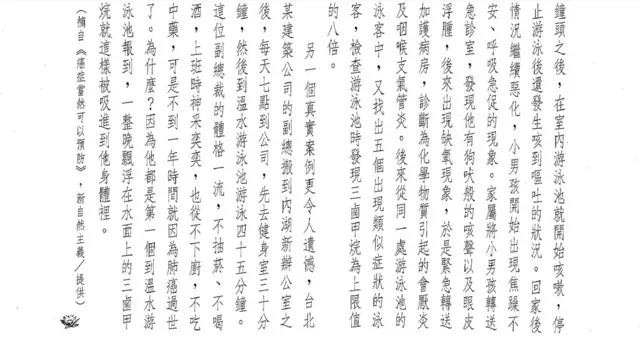 鐘頭之後，在室內游泳池就開始咳嗽，停
止游泳後還發生咳到嘔吐的狀況。回家後
情況繼續惡化，小男孩開始出現焦躁不
安、呼吸急促的現象。家屬將小男孩轉送
急診室，發現他有狗吠般的咳聲以及眼皮
浮腫，後來出現缺氧現象，於是緊急轉送
加護病房，診斷為化學物質引起的會厭炎
及咽喉支氣管炎。後來從同一處游泳池的
泳客中，又找出五個出現類似症狀的泳
客，檢查游泳池時發現三鹵甲烷為上限值
的八倍。
另一個真實案例更令人遺憾，台北
某建築公司的副總搬到內湖新辦公室之
後，每天七點到公司，先去健身室三十分
鐘，然後到溫水游泳池游泳四十五分鐘。
這位副總裁的體格一流，不抽菸、不喝
酒，上班時神采奕奕，也從不下廚，不吃
中藥，可是不到一年時間就因為肺癌過世
了。為什麼？因為他都是第一個到溫水游
泳池報到，一整晚飄浮在水面上的三鹵甲
烷就這樣被吸進到他身體裡。
（摘自《癌症當然可以預防》，新自然主義／提供）